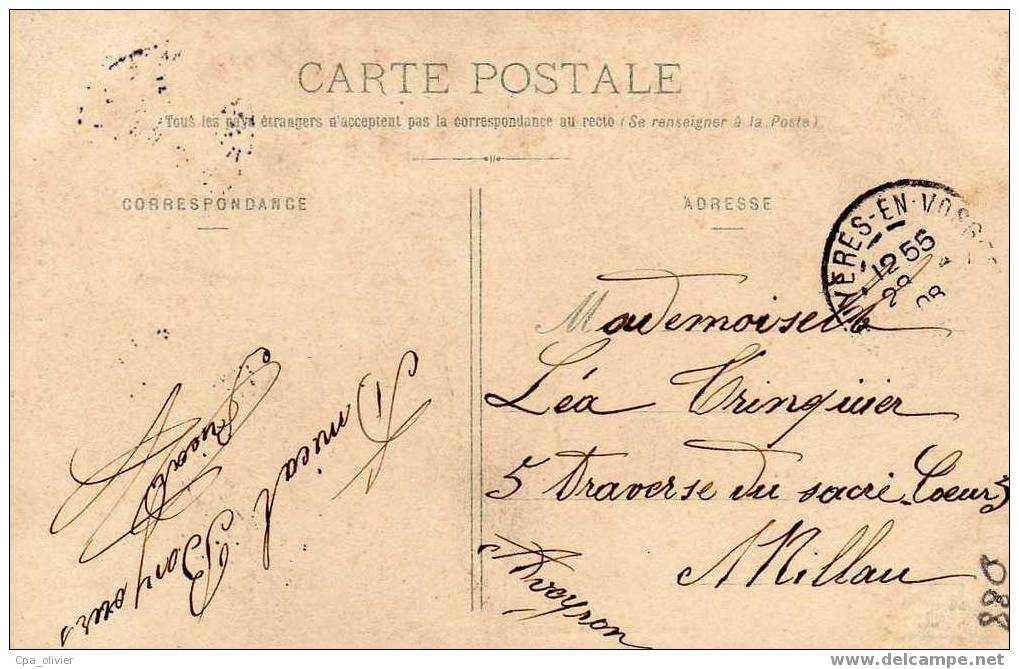 CARTE POSTALE
Tous les pays étrangers n'acceptent pas la correspondance au recto (Se renseigner à la Poste)
CORRESPONDANCE
ADRESSE
YÈRES-EN-VOSGE
12 55
29
08
Mademoiselle
Léa Trinquier
5 Traverse du sacré-Coeur 5
Millau
Aveyron
Amical Bonjour
880
Cpa_olivier
delcampe.net